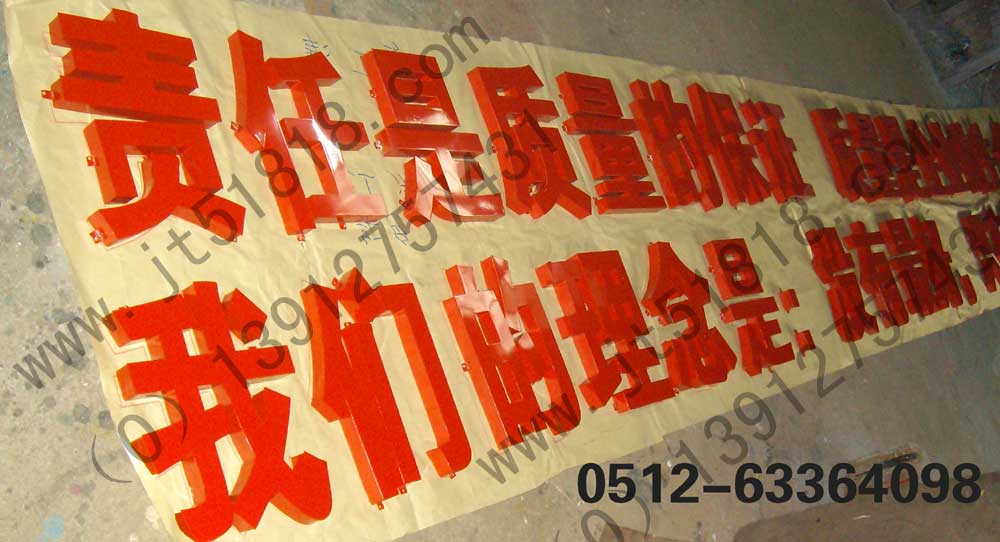 责任是质量的保证 质量是企业的
我们的理念是：没有最
www.jt5818.com
(0)13912757431
www.jt5818.com
(0)13912757431
0512-63364098